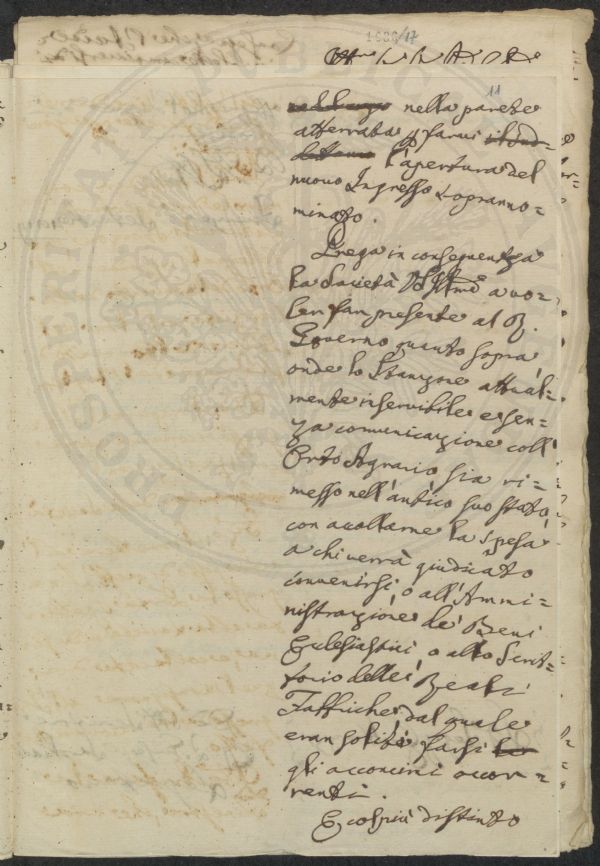 1688/17
11
nella parete
atterrata p farvi
l'apertura del
nuovo Ingresso sopranno=
minato.
Prega in conseguenza
la Società VS Illma a vo=
ler far presente al R.
Governo quanto sopra
onde lo Stanzone attual=
mente inservibile e sen=
za comunicazione coll'
Orto Agrario sia ri=
messo nell'antico suo stato
con accollarne la spesa
a chi verrà giudicato
convenirsi, o all'Ammi=
nistrazione de' Beni
Eclesiastici o allo Scrit=
torio delle Reali
Fabbriche dal quale
eran soliti farsi
gli acconcimi occor=
renti.
E col più distinto